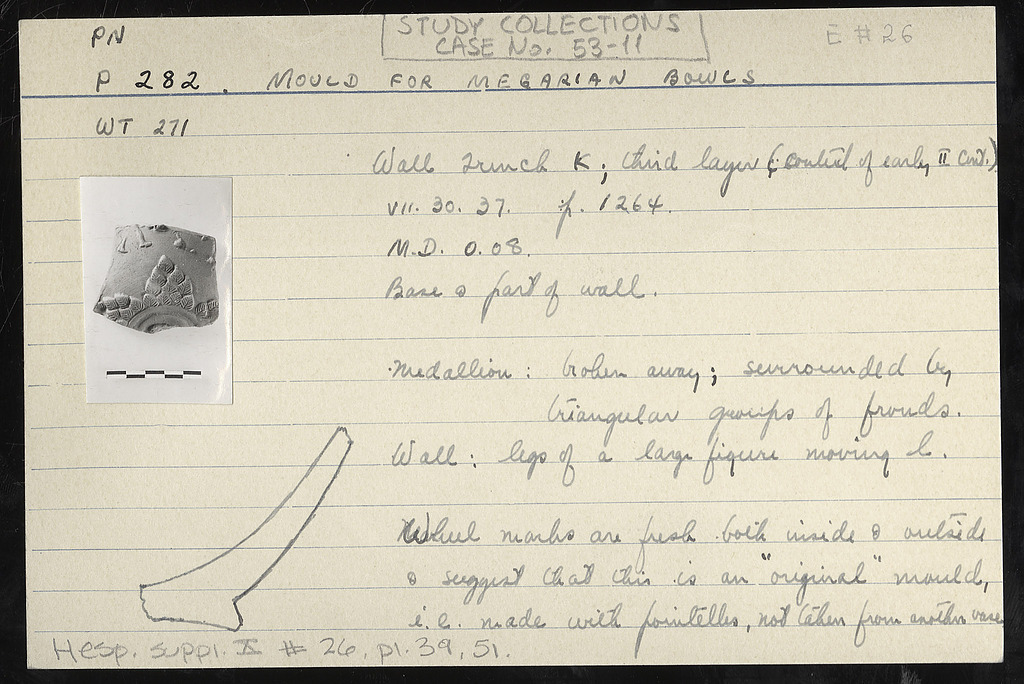 PN
STUDY COLLECTIONS
CASE No. 53-11
E # 26
P 282. MOULD FOR MEGARIAN BOWLS
WT 271
Wall Trench K; third layer (context of early II cent.)
VII. 30. 37. p. 1264.
M.D. 0.08.
Base & part of wall.
Medallion: broken away; surrounded by
triangular groups of fronds.
Wall: legs of a large figure moving l.
Wheel marks are fresh both inside & outside
& suggest that this is an "original" mould,
i.e. made with pointelles, not taken from another vase
Hesp. suppl. X # 26, pl. 39, 51.